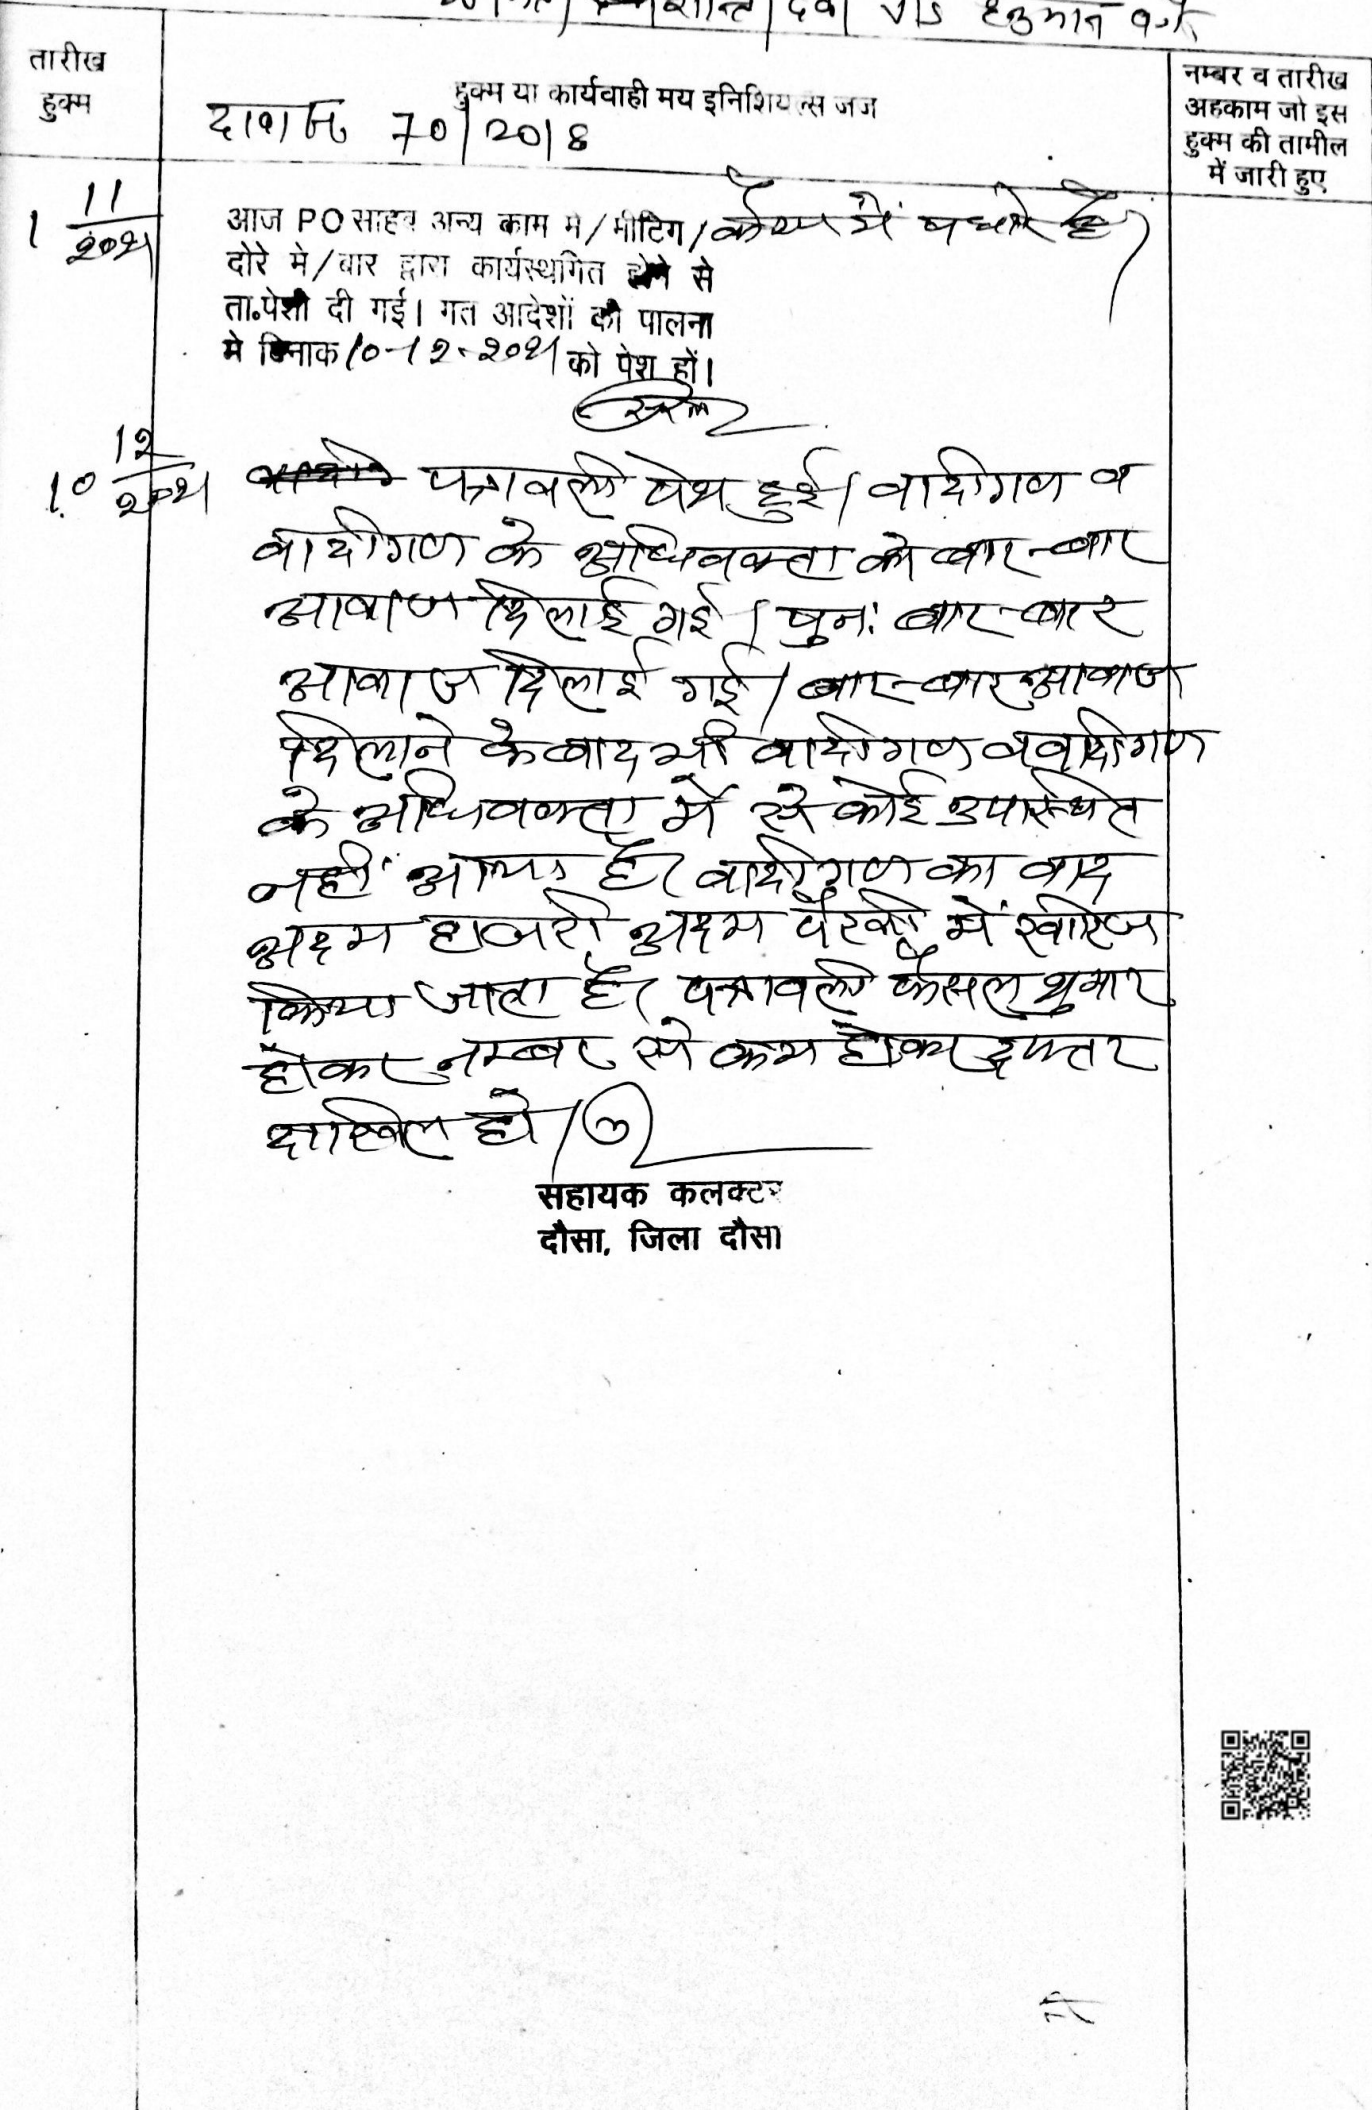 शान्ति देवी V/S हनुमान
तारीख
हुक्म
हुक्म या कार्यवाही मय इनिशियल्स जज
नम्बर व तारीख
अहकाम जो इस
हुक्म की तामील
में जारी हुए
70/2018
1 11/2021
आज PO साहब अन्य काम मे/मीटिग/कैम्प में पधारे है।
दोरे मे/बार द्वारा कार्यस्थगित होने से
ता.पेशी दी गई। गत आदेशों की पालना
मे दिनाक 10-12-2021 को पेश हों।
10 12/2021
पत्रावली पेश हुई। वादीगण व
वादीगण के अधिवक्ता को बार-बार
आवाज दिलाई गई। पुनः बार-बार
आवाज दिलाई गई। बार-बार आवाज
दिलाने के बाद भी वादीगण व वादीगण
के अधिवक्ता में से कोई उपस्थित
नहीं आया है। वादीगण का वाद
अदम हाजरी अदम पैरवी में खारिज
किया जाता है। पत्रावली फैसल शुमार
होकर नम्बर से कम होकर दफ्तर
दाखिल हो।
सहायक कलक्टर
दौसा, जिला दौसा